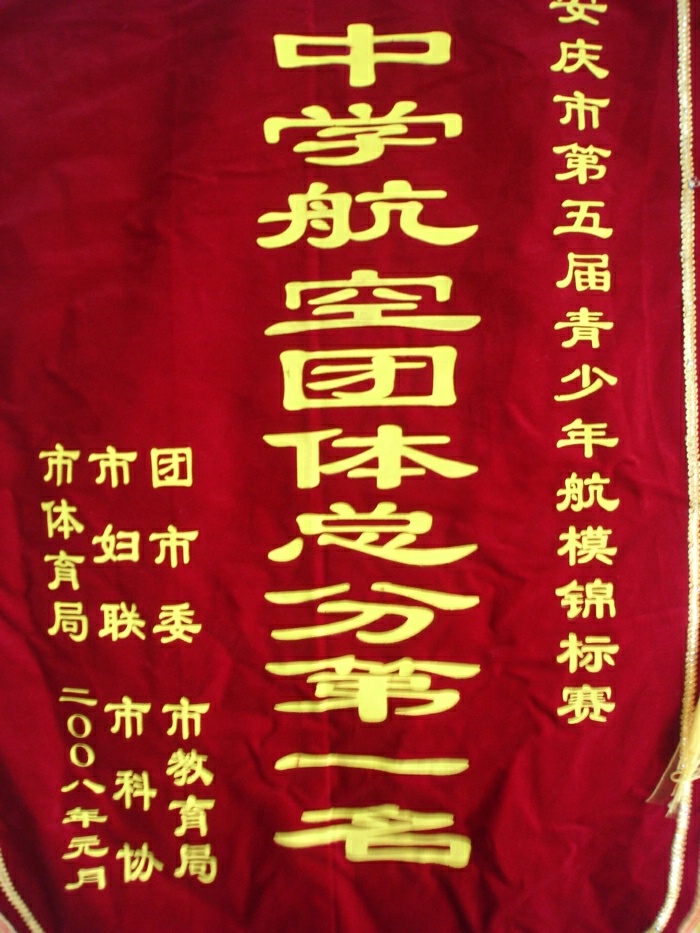 安庆市第五届青少年航模锦标赛
中学航空团体总分第一名
团市委 市教育局
市妇联 市科协
市体育局 二〇〇八年元月